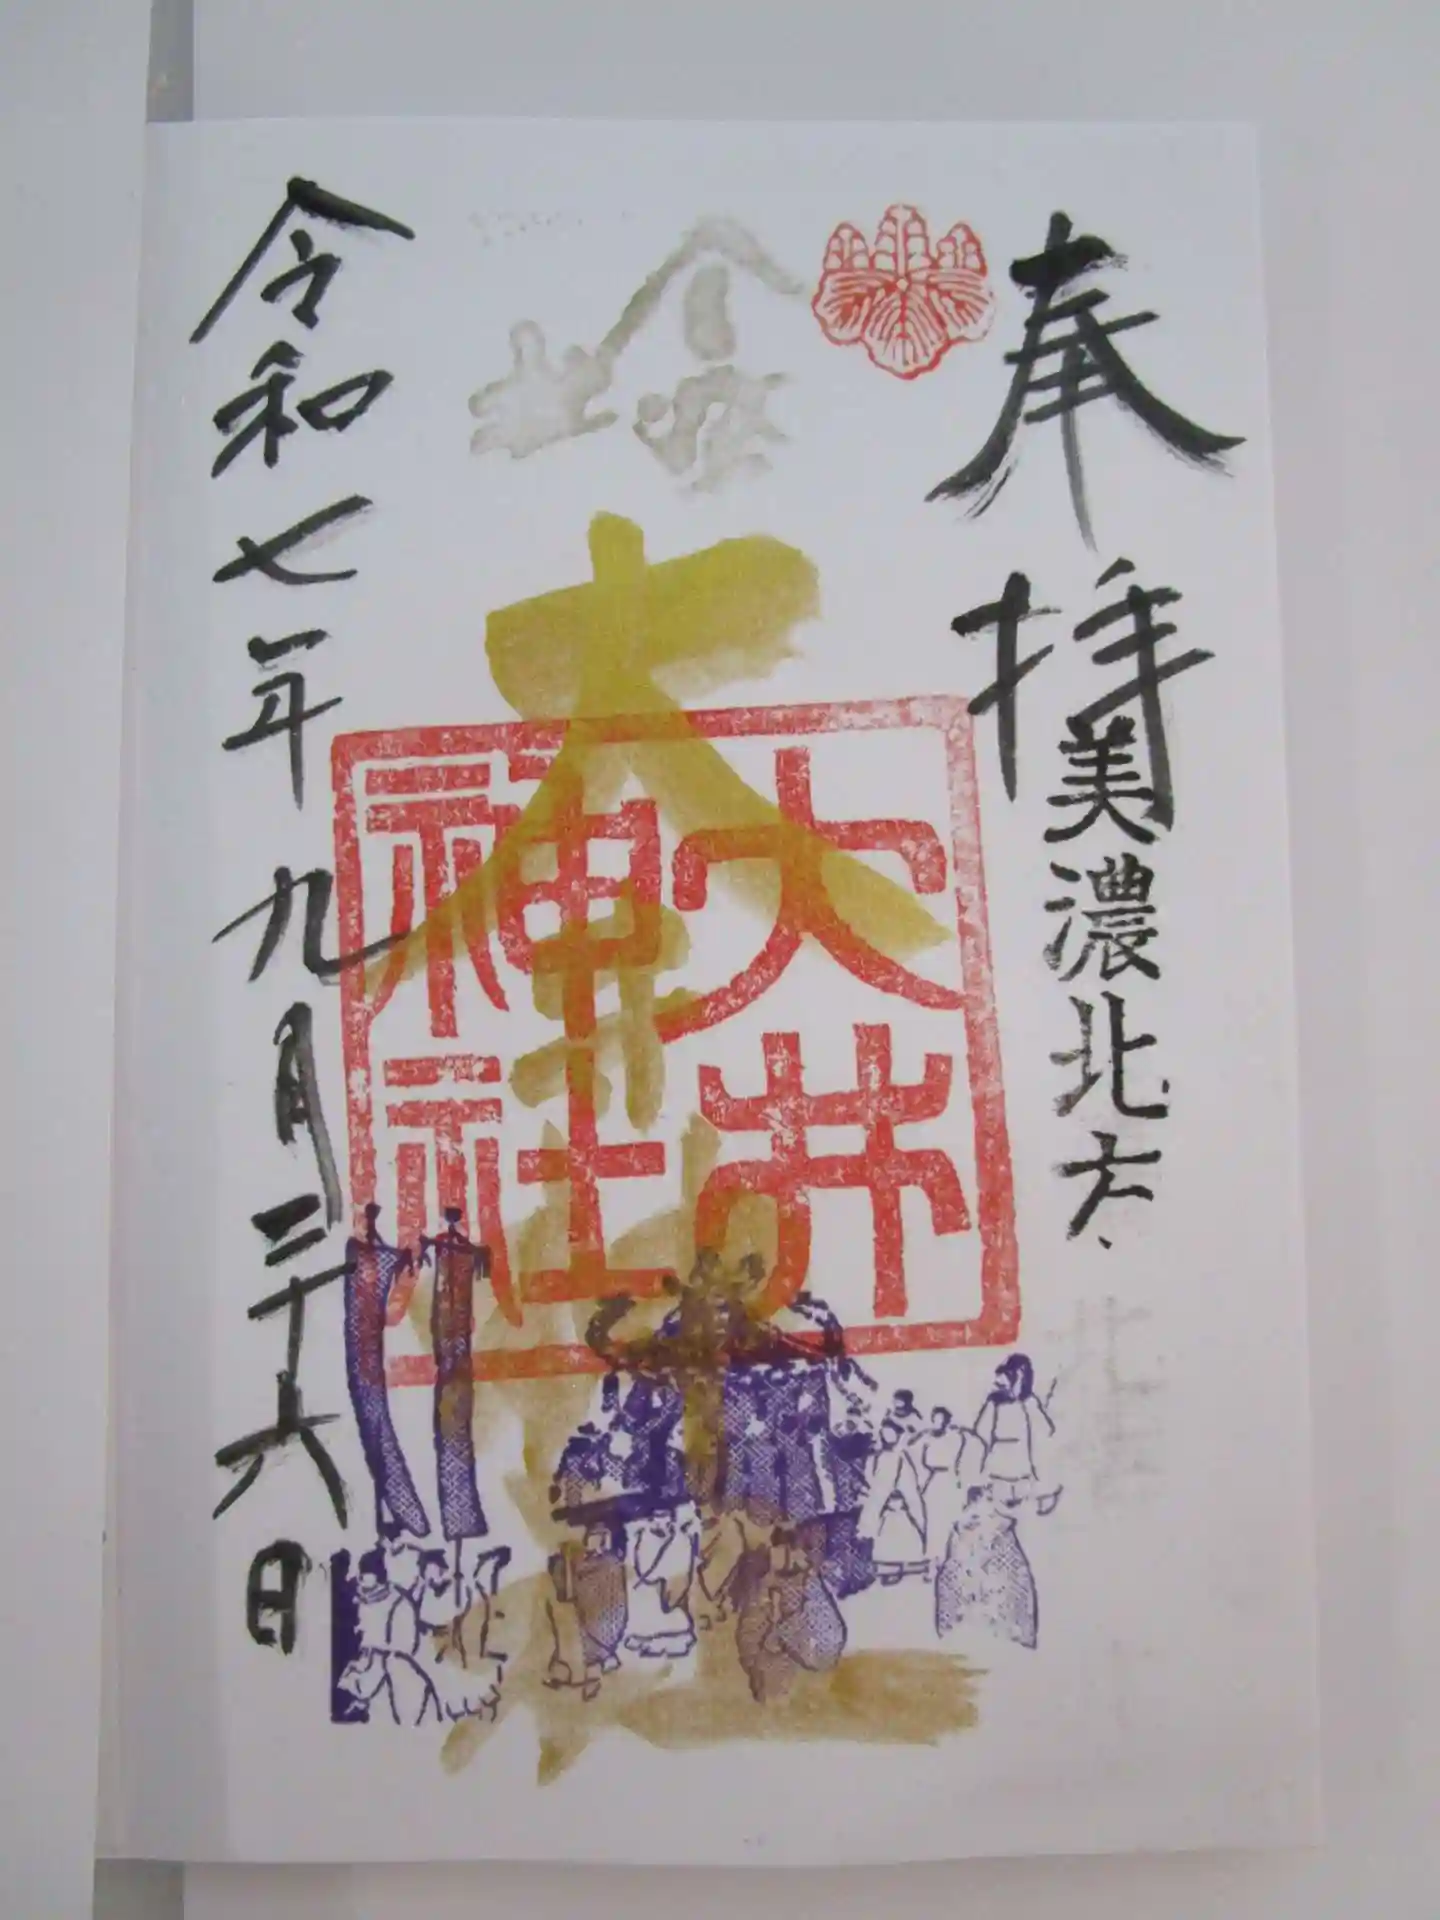 奉拝
美濃北方
大井神社
大井
神社
令和七年九月二十六日